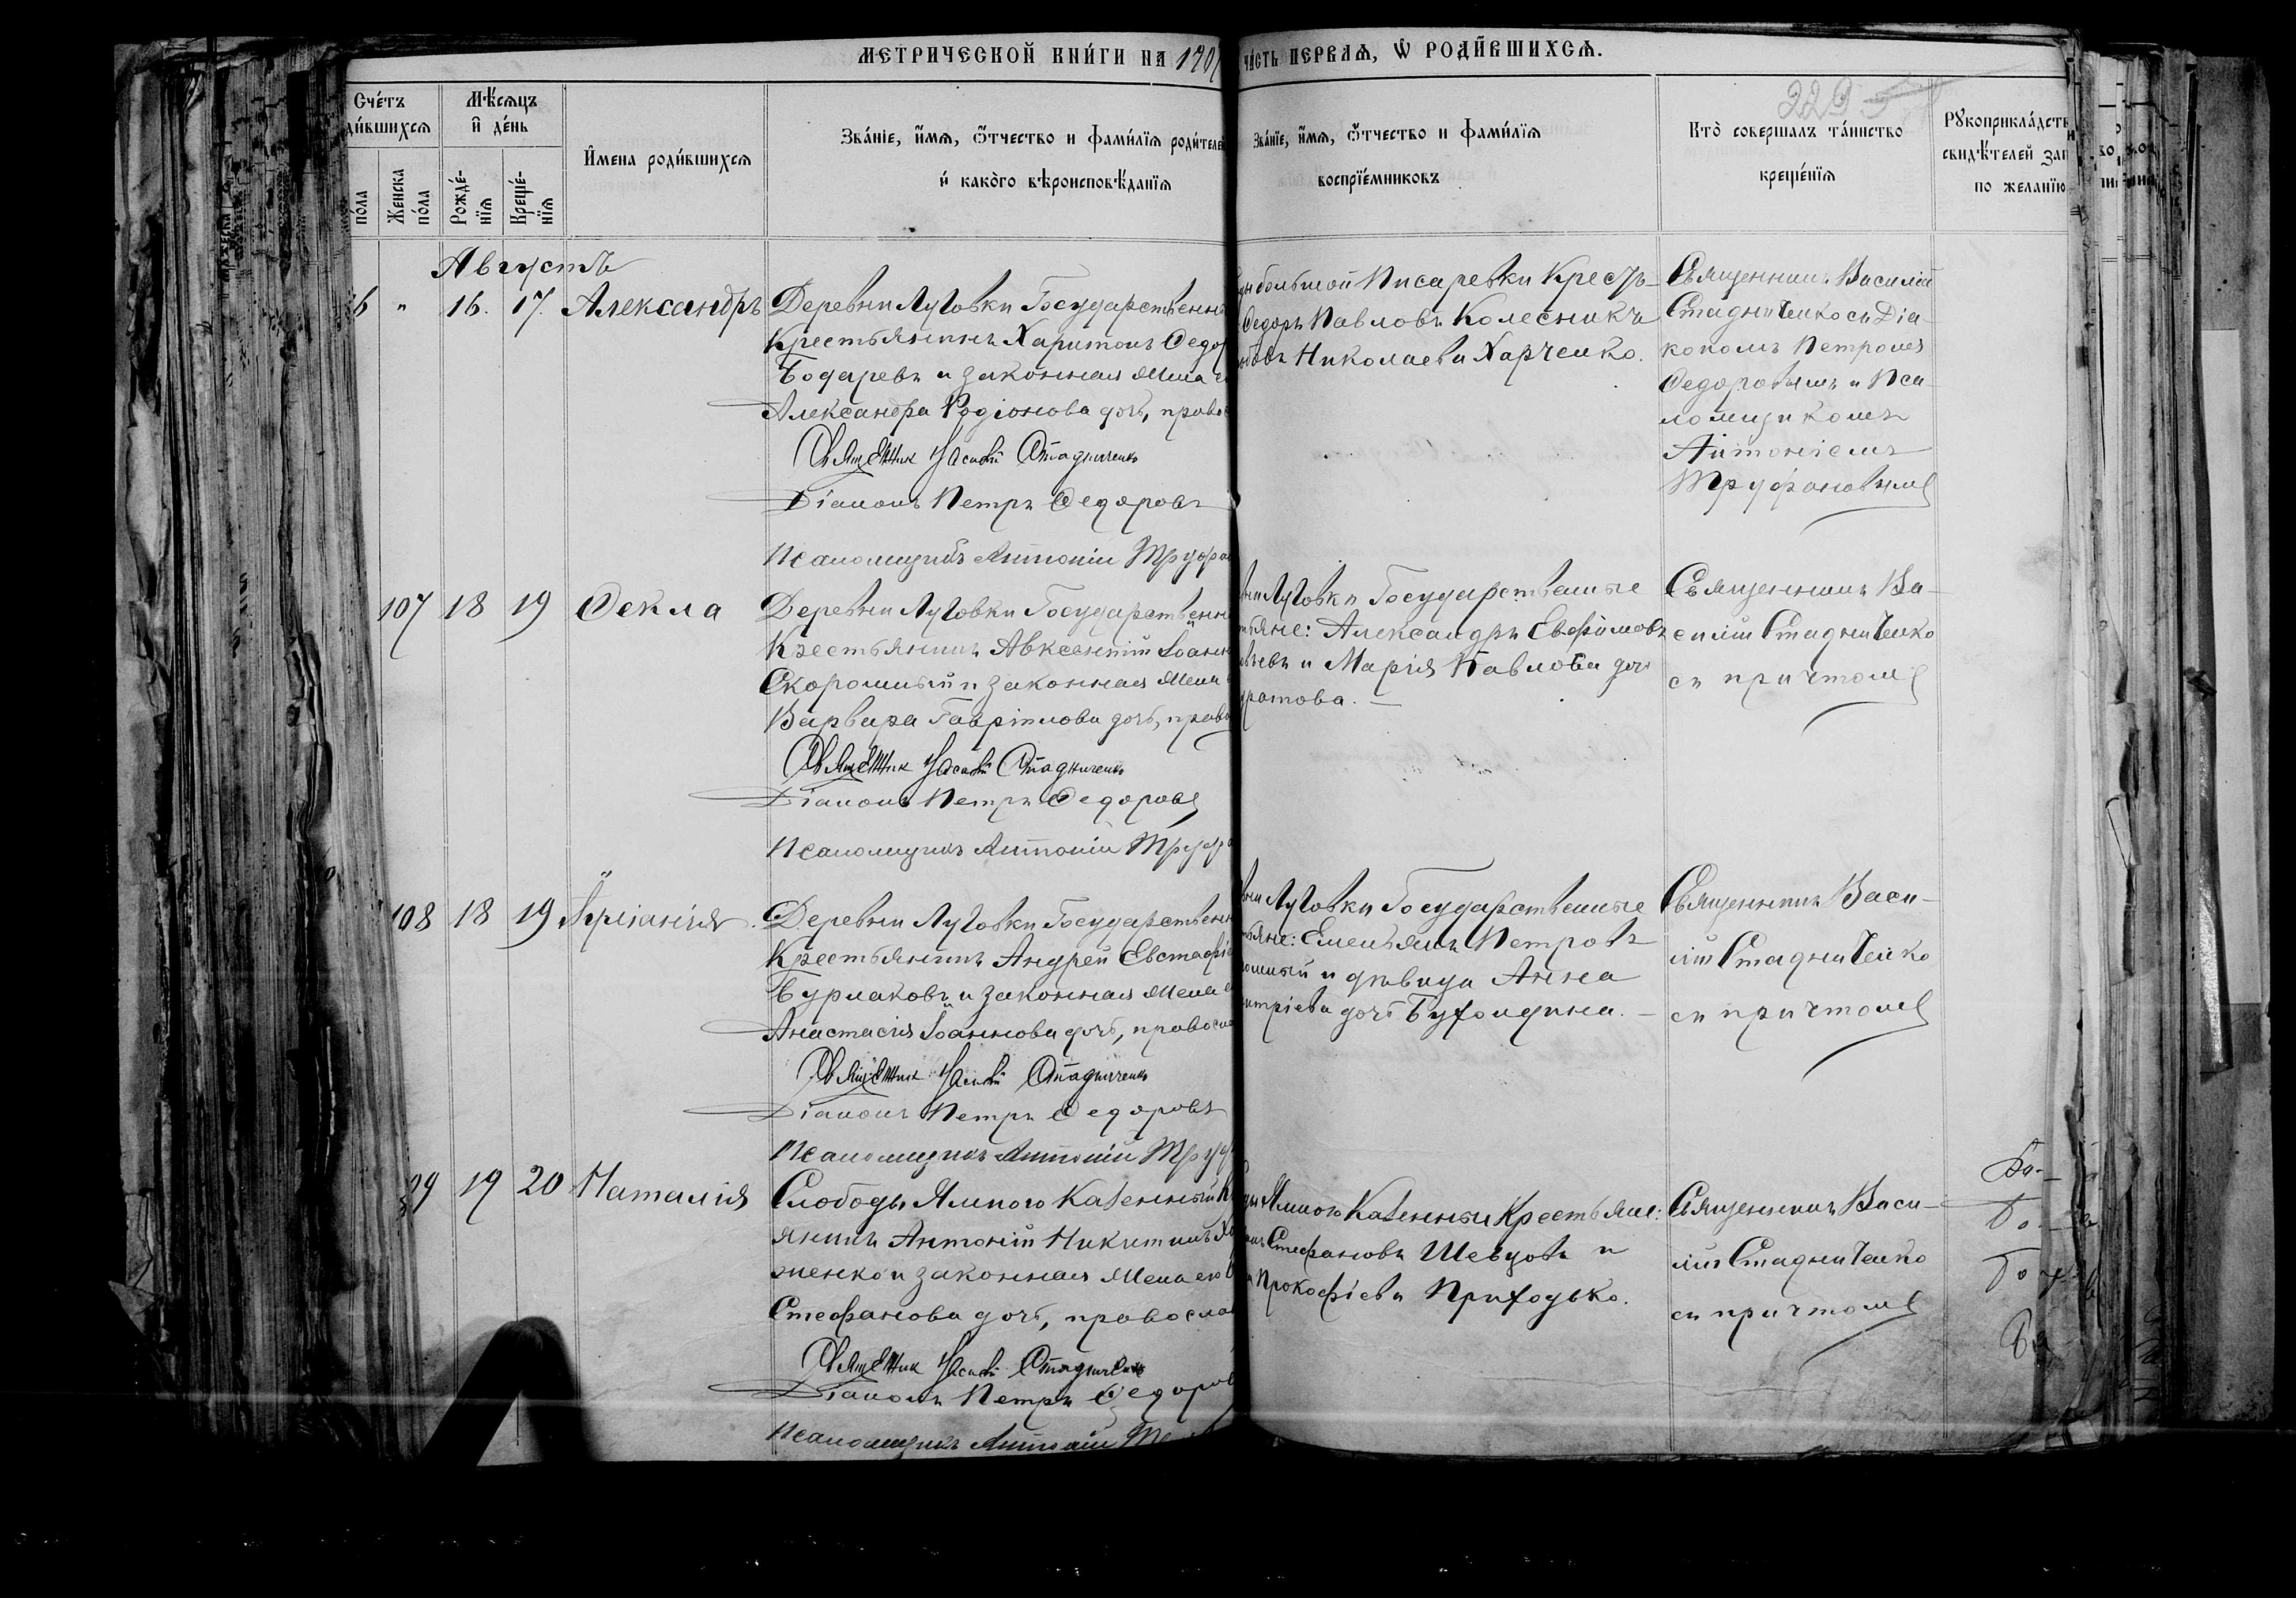 МЕТРИЧЕСКОЙ КНИ́ГИ НА 190
ЧА́СТЬ ПЕРВАѦ, Ѡ РОДИ́ВШИХСѦ.
229
Сче́тъ
ди́вшихсѧ
по́ла
Женска
по́ла
Мѣ́сѧцъ
и҆ де́нь
Рожде́-
нїѧ
Креще́-
нїѧ
И҆мена роди́вшихсѧ
Зва́нїе, и҆́мѧ, ѻ҆́тчество и фами́лїѧ роди́телей
и҆ како́гѡ вѣроисповѣ́данїѧ
Зва́нїе, и҆́мѧ, ѻ҆́тчество и фами́лїѧ
воспрїе́мниковъ
Кто̀ совершалъ та́инство
креще́нїѧ
Рꙋкоприкла́дств
свидѣ́телей зап
по желанїю
Августъ
6 " 16. 17. Александръ
Деревни Луговки Государственн
Крестьянинъ Харитонъ Ѳедор
Бодаревъ и законная жена е
Александра Родіонова дочь, правос
Священник Василій Стадниченко
Діаконъ Петръ Ѳедоровъ
Псаломщикъ Антоній Труфан
большой Писаревки Крестъ-
Ѳедоръ Павловъ Колесникъ
Николаева Харченко.
Священникъ Василій
Стадниченко съ Діа-
кономъ Петромъ
Ѳедоровымъ и Пса-
ломщикомъ
Антоніемъ
Труфановымъ
107 18 19 Ѳекла
Деревни Луговки Государственн
Крестьянинъ Авксентій Іоанн
Скоромный и законная жена
Варвара Гавріилова дочь, право
Священник Василій Стадниченко
Діаконъ Петръ Ѳедоровъ
Псаломщикъ Антоній Труф
Луговки Государственные
яне: Александръ Евфимовъ
и Марія Павлова дочь
ратова.
Священникъ Ва-
силій Стадниченко
съ причтомъ
108 18 19
Деревни Луговки Государственн
Крестьянинъ Андрей Евстафіе
Бурлаковъ и законная жена е
Анастасія Іоаннова дочь, правосла
Священник Василій Стадниченко
Діаконъ Петръ Ѳедоровъ
Псаломщикъ Антоній Труф
Луговки Государственные
яне: Емельянъ Петровъ
омный и дѣвица Анна
итріева дочь
Священникъ Васи-
лій Стадниченко
съ причтомъ
19 20 Наталія
Слободы Ямного Казенный Кр
янинъ Антоній Никитинъ
женко и законная жена его
Стефанова дочь, правосла
Священник Василій Стадниченко
Діаконъ Петръ Ѳедоров
Псаломщикъ Антоній
Ямного Казенные Крестьяне:
Стефановъ Шевцовъ и
Прокофіева Приходько.
Священникъ Васи-
лій Стадниченко
съ причтомъ